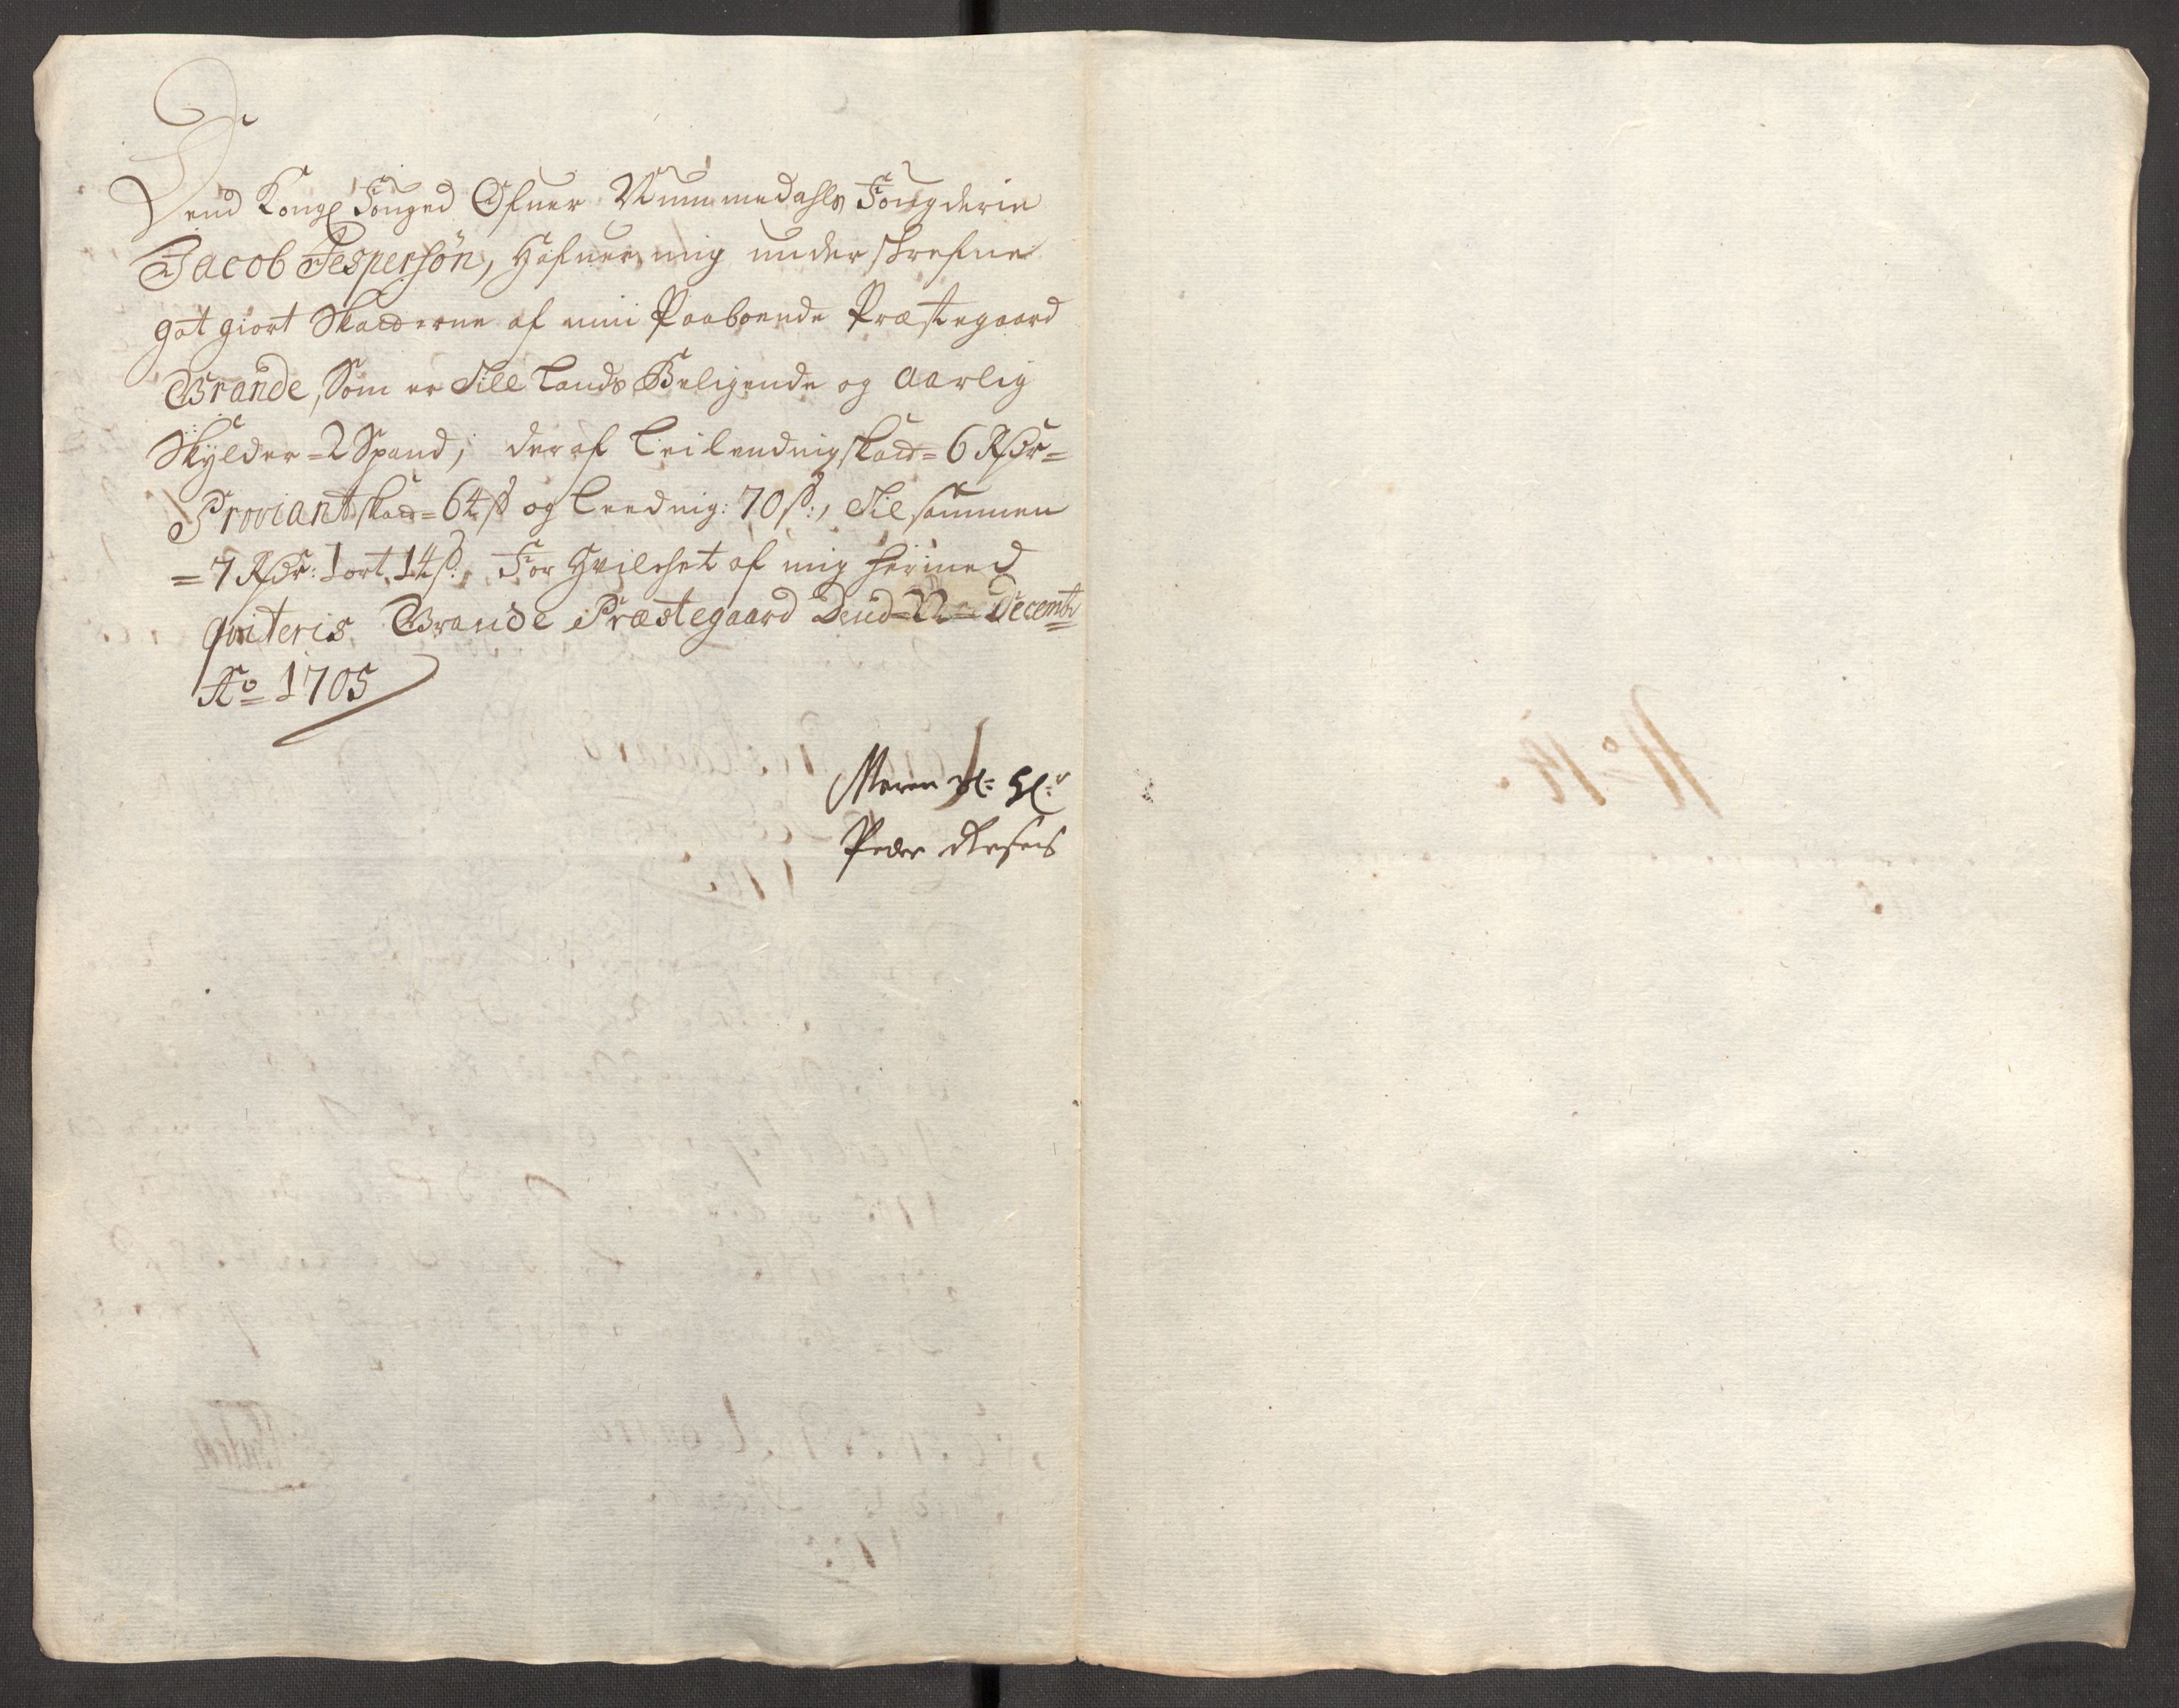 Dend Kongl Fouged Ofuer Nummedahls Fougderie
Jacob Jespersøn, Hafuer mig underskrefne
got giort Skatterne af min Paaboende Præstegaard
Brande, Som er Till Lands Beligende og Aarlig
Skÿlder = 2 Spand, deraf Leilendingskatt = 6 Rdr =
Proviantskatt = 64 s og Leeding: 70 s:, Tilsammen
= 7 Rdr: 1 ort 14 s: For Hvilchet af mig hermed
qviteris Brande Præstegaard Dend Decembr
Ao 1705
Maren Sl: Hr
Peder
No 14.